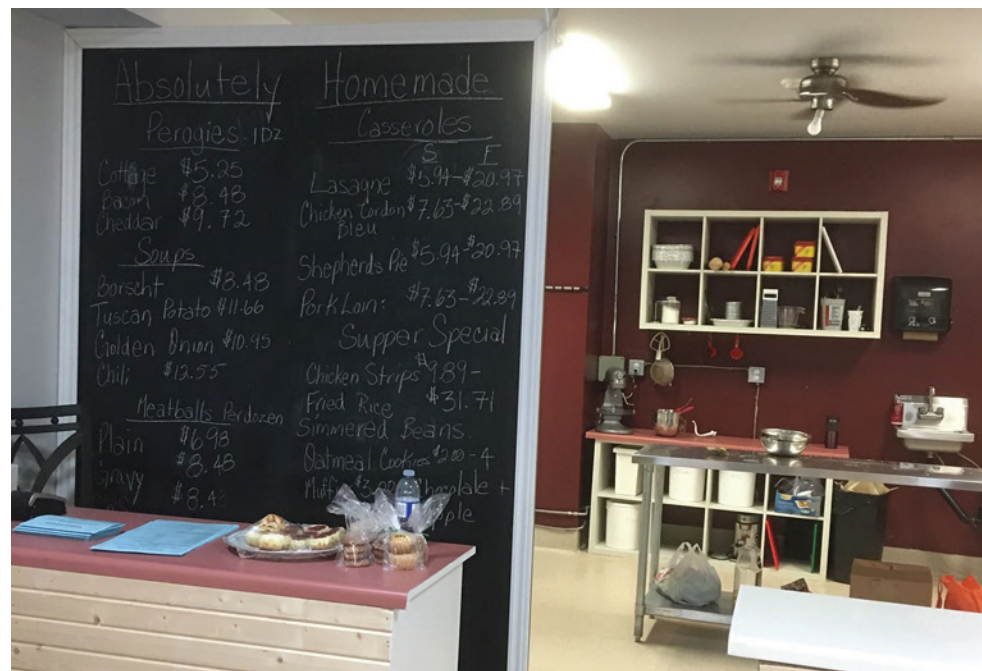 Absolutely Homemade
Perogies 1DZ
Cottage $5.25
Bacon $8.48
Cheddar $9.72
Soups
Borscht $8.48
Tuscan Potato $11.66
Golden Onion $10.95
Chili $12.55
Meatballs Per dozen
Plain $6.98
Gravy $8.48
$8.48
Casseroles
S F
Lasagne $5.94-$20.97
Chicken Cordon $7.63-$22.89
Bleu
Shepherds Pie $5.94-$20.97
Pork Loin: $7.63-$22.89
Supper Special
Chicken Strips $9.89-
Fried Rice $31.71
Simmered Beans
Oatmeal Cookies $2.00-4
Chocolate +